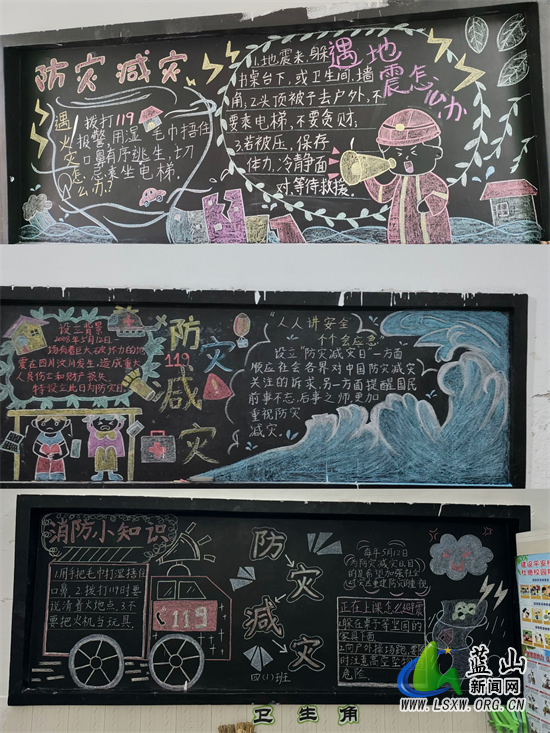 防灾减灾
遇火灾怎么办?
拨打119
报警,用湿毛巾捂住
口鼻有序逃生,切
忌乘坐电梯。
遇地震怎么办
1.地震来,躲
书桌台下,或卫生间,墙
角,2.头顶被子去户外,不
要乘电梯,不要贪财,
3.若被压,保存
体力,冷静面
对,等待救援。
设立背景
2008年5月12日
人员伤亡和财产损失
特设立此日为防灾日
防灾减灾
119
“人人讲安全
个个会应急”
设立“防灾减灾日”一方面
顺应社会各界对中国防灾减灾
关注的诉求,另一方面提醒国民
前事不忘,后事之师,更加
重视防灾
减灾。
消防小知识
1.用手把毛巾打湿捂住
口鼻。2.拨打119时要
说清着火地点。3.不
要把火机当玩具。
119
防灾减灾
四(1)班
每年5月12日
为防灾减灾日,目
躲在桌子等坚固的
家具下面
危险。
卫生角
蓝山
新闻网
WWW.LSXW.ORG.CN